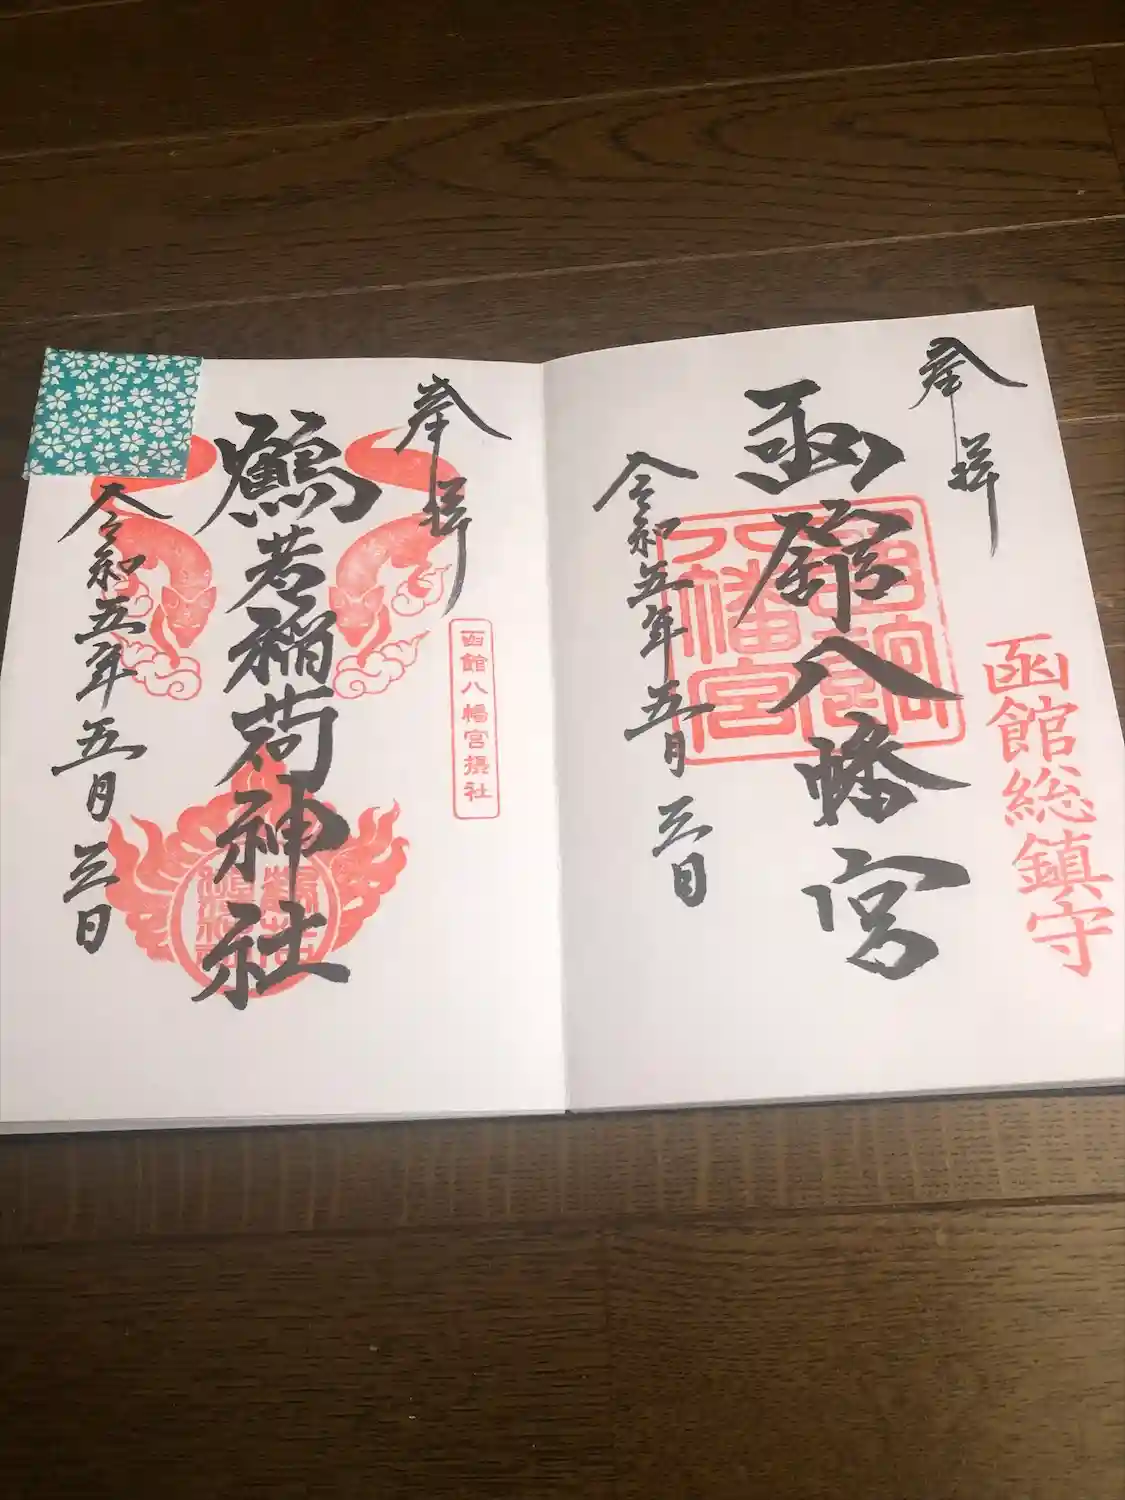 奉拝
函館総鎮守
函館八幡宮
令和五年五月三日
奉拝
函館八幡宮摂社
鶴若稲荷神社
令和五年五月三日